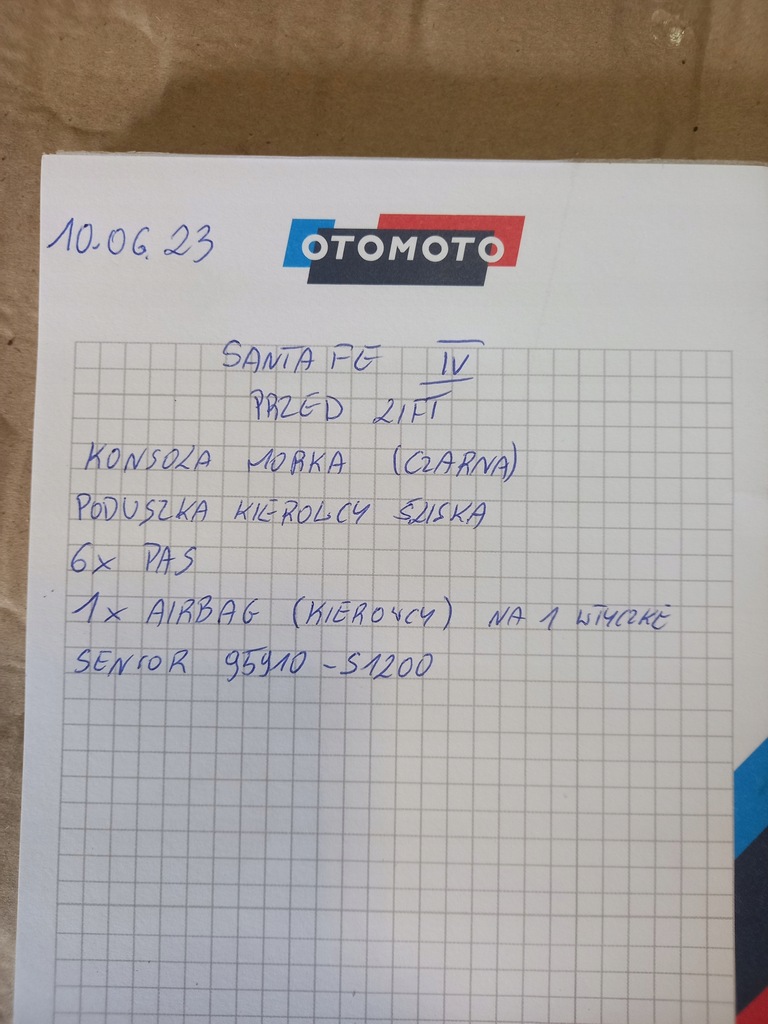 10.06.23
OTOMOTO
SANTA FE IV
PRZED LIFT
KONSOLA NORKA (CZARNA)
PODUSZKA KIEROWCY ŚLISKA
6x PAS
1x AIRBAG (KIEROWCY) NA 1 WTYCZKĘ
SENSOR 95910-S1200